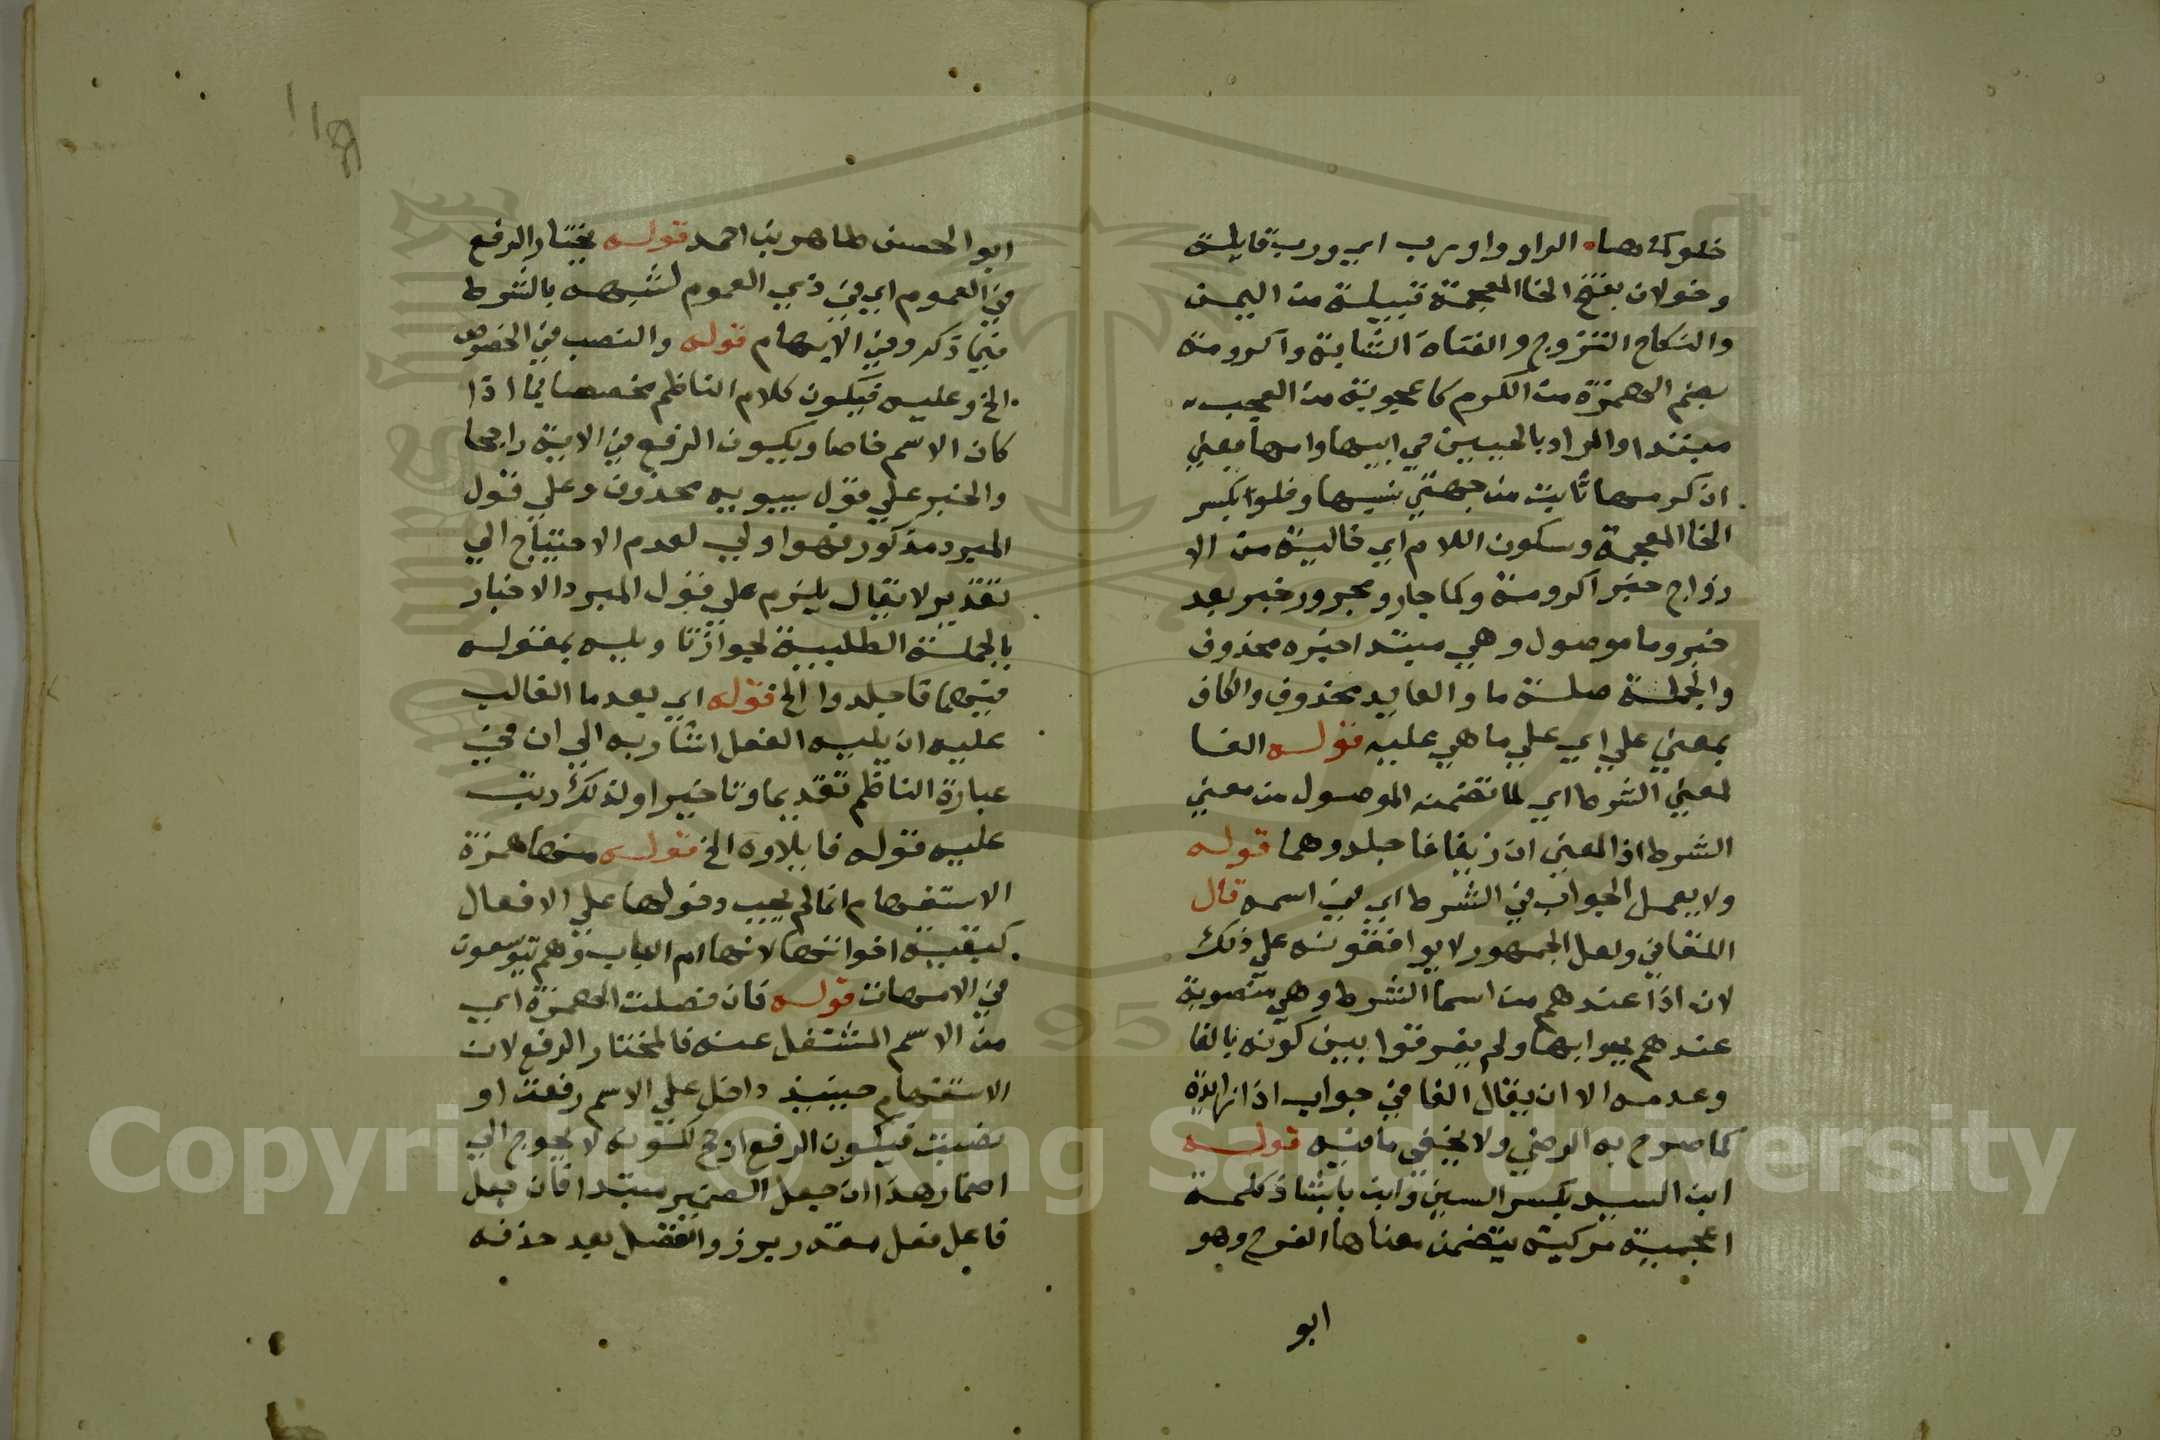 خلو كما هيا الواو واو رب اي ورب قايلة
وخولان بفتح الخا المعجمة قبيلة من اليمن
والنكاح التزوج والفتاة الشابة وآكرومة
بضم الهمزة من الكرم كاعجوبة من العجب
مبتدا والمراد بالحيين حي ابيها وامها يعني
ان كرمها ثابت من جهتي نسبها وخلو بكسر
الخا المعجمة وسكون اللام اي خالية من الا
زواج خبر اكرومة وكما جار ومجرور خبر بعد
خبر وما موصول وهي مبتدا خبره محذوف
والجملة صلة ما والعايد محذوف والكاف
بمعني علي اي علي ما هي عليه قوله الفا
لمعني الشرط اي لما تضمنه الموصول من معني
الشرط اذ المعني ان زنيا فاجلدوهما قوله
ولا يعمل الجواب في الشرط اي في اسمه قال
اللقاني ولعل الجمهور لا يوافقونه علي ذلك
لان اذا عندهم من اسما الشرط وهي منصوبة
عندهم بجوابها ولم يفرقوا بين كونه بالفا
وعدمه الا ان يقال الفا في جواب اذا زايدة
كما صرح به الرضي ولا يخفي ما فيه قوله
ابن السيد بكسر السين وابن بابشاذ كلمة
اعجمية مركبة يتضمن معناها الفرح وهو
ابو
ابو الحسن طاهر بن احمد قوله يختار الرفع
في العموم اي في ذي العموم لشبهه بالشرط
فيما ذكر وفي الابهام قوله والنصب في الخصوص
الخ وعليه فيكون كلام الناظم مخصصا بما اذا
كان الاسم خاصا ويكون الرفع في الاية راجحا
والخبر علي قول سيبويه محذوف وعلي قول
المبرد مذكور فهو اولي لعدم الاحتياج الي
تقدير لا يقال يلزم علي قول المبرد الاخبار
بالجملة الطلبية لجواز تاويله بمقوله
فيهما فاجلدوا الخ قوله اي بعد ما الغالب
عليه ان يليه الفعل اشار به الي ان في
عبارة الناظم تقديما وتاخيرا ولذلك رتب
عليه قوله فايلاوه الخ قوله منها همزة
الاستفهام انما لم يجب دخولها علي الافعال
كبقية اخواتها لانها ام الباب وهم يتوسعون
في الامهات قوله فان فصلت الهمزة اي
من الاسم المشتغل عنه فالمختار الرفع لان
الاستفهام حينيذ داخل علي الاسم رفعت او
نصبت فيكون الرفع ارجح لكونه لا يحوج الي
اضمار هذا ان جعل الضمير مبتدا فان جعل
فاعل فعل مقدر برز وانفصل بعد حذفه
Copyright © King Saud University
1957